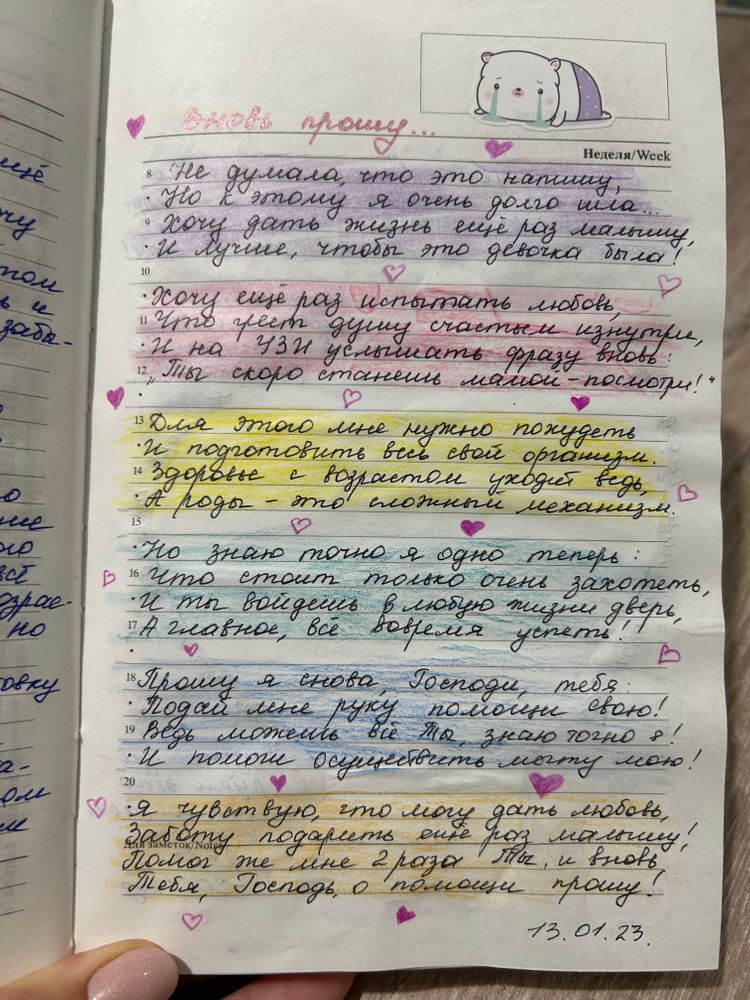 Вновь прошу...
Неделя/Week
8 Не думала, что это напишу,
Но к этому я очень долго шла...
9 Хочу дать жизнь ещё раз малышу,
И лучше, чтобы это девочка была!
10
Хочу ещё раз испытать любовь,
11 Что греет душу счастьем изнутри,
И на УЗИ услышать фразу вновь:
12 „Ты скоро станешь мамой - посмотри!"
13 Для этого мне нужно похудеть
И подготовить весь свой организм.
14 Здоровье с возрастом уходит ведь,
А роды - это сложный механизм.
15
Но знаю точно я одно теперь:
16 Что стоит только очень захотеть,
И ты войдешь в любую жизни дверь,
17 А главное, всё вовремя успеть!
18 Прошу я снова, Господи, тебя:
Подай мне руку помощи свою!
19 Ведь можешь всё Ты, знаю точно я!
И помоги осуществить мечту мою!
20
Я чувствую, что могу дать любовь,
Заботу подарить ещё раз малышу!
Для заметок/Notes
Помог же мне 2 раза Ты, и вновь
Тебя, Господь, о помощи прошу!
13.01.23.
ещё
чу
том
ь и
забы-
о
ние
ого
всё
озрас-
но
товку
а-
ом